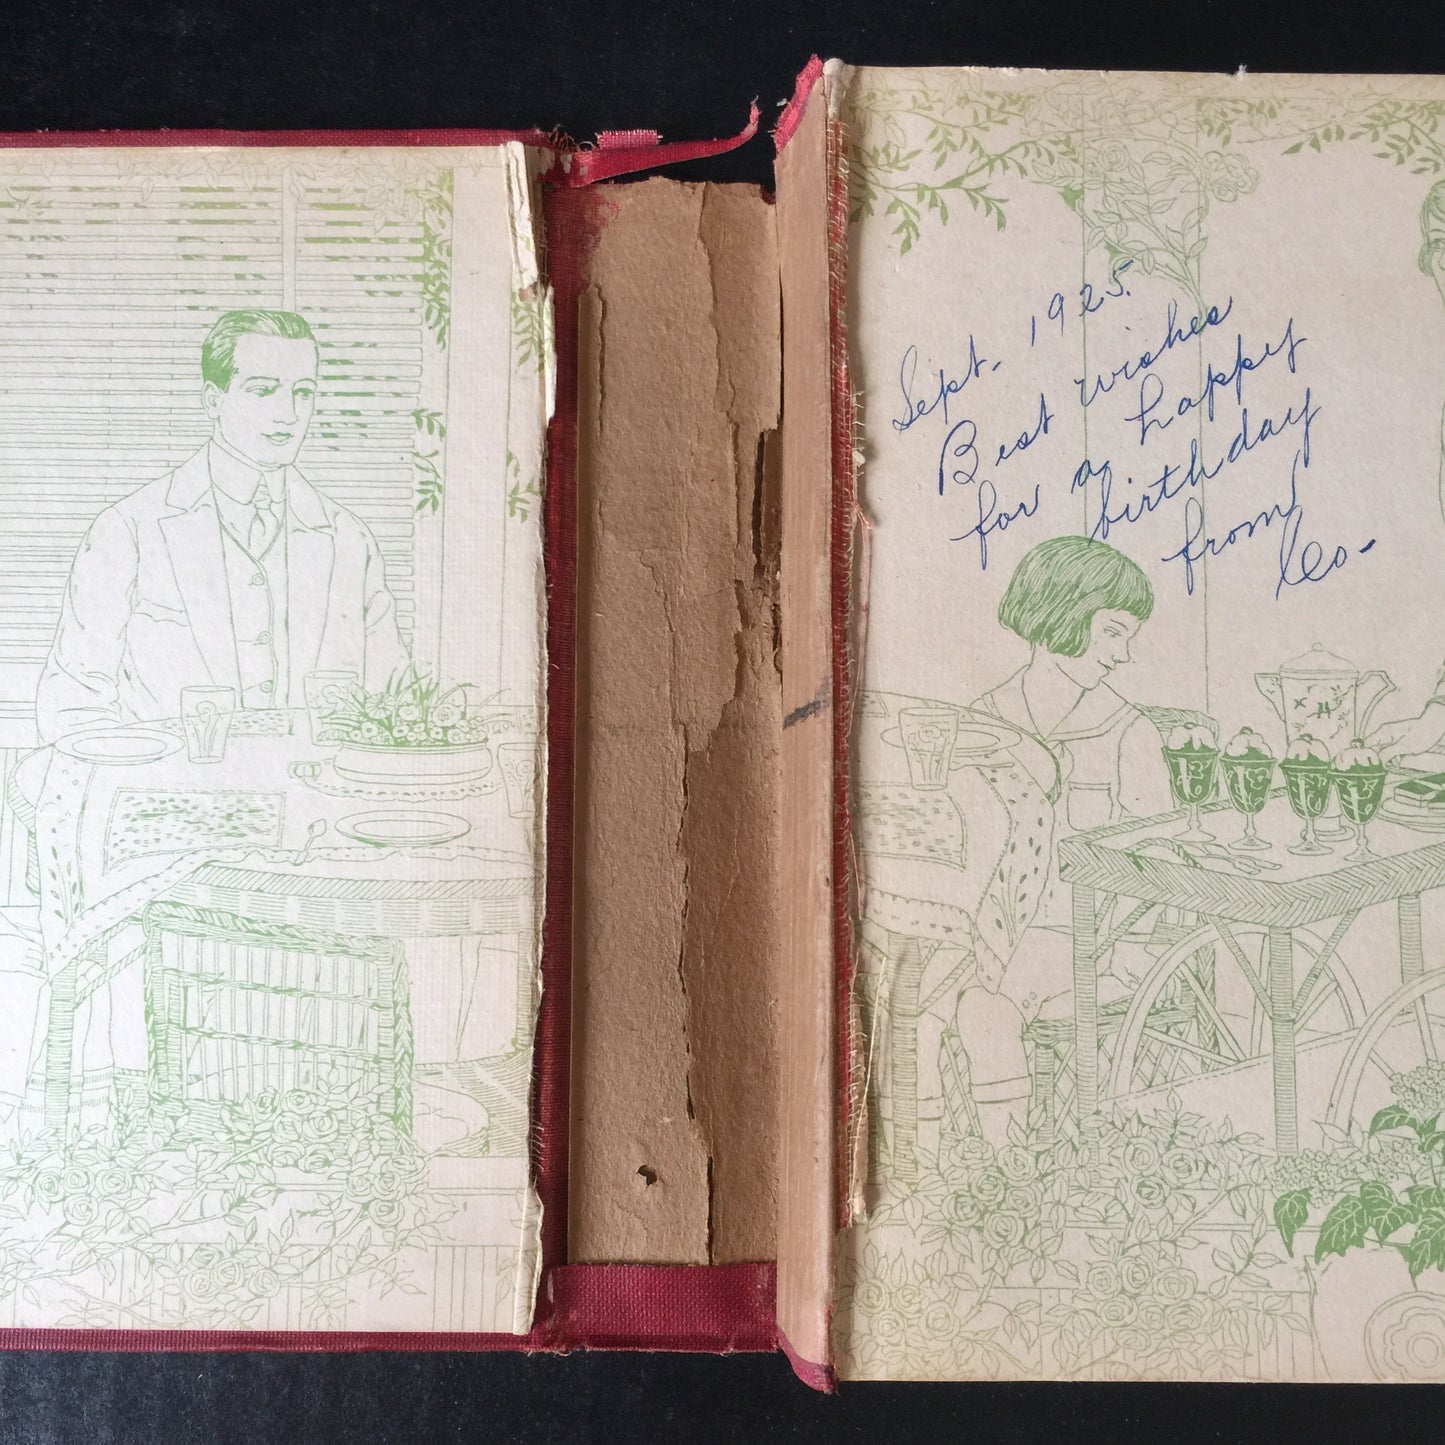 Sept. 1925.
Best wishes
for a happy
birthday
from
Leo-